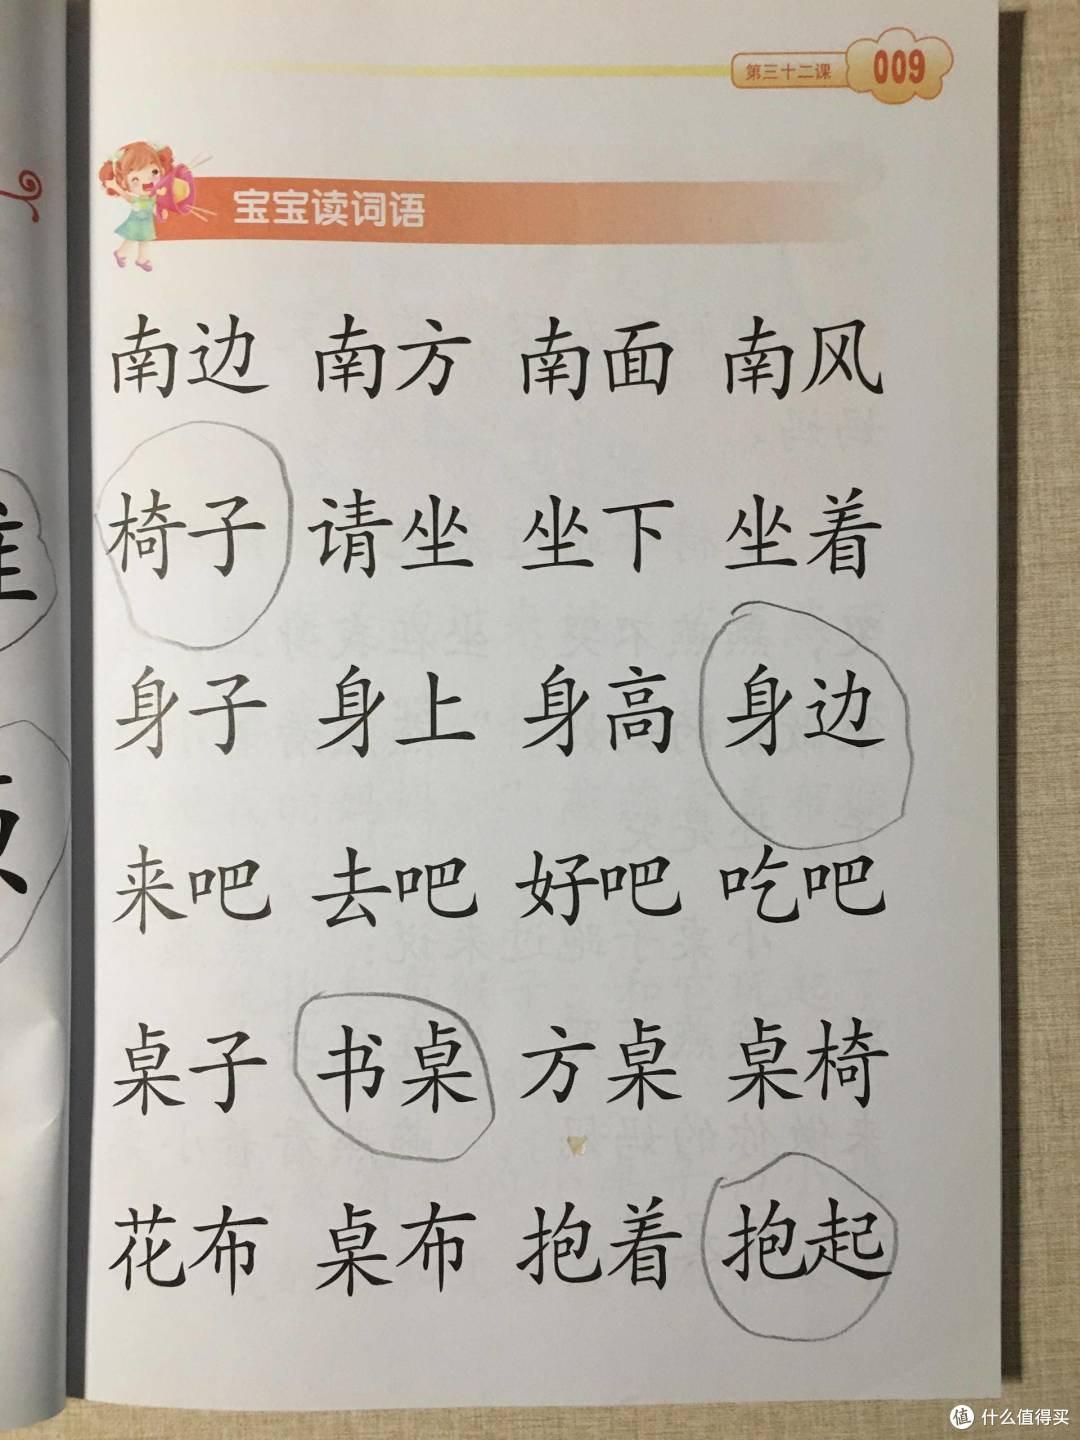 第三十二课 009
宝宝读词语
南边 南方 南面 南风
椅子 请坐 坐下 坐着
身子 身上 身高 身边
来吧 去吧 好吧 吃吧
桌子 书桌 方桌 桌椅
花布 桌布 抱着 抱起
值 什么值得买